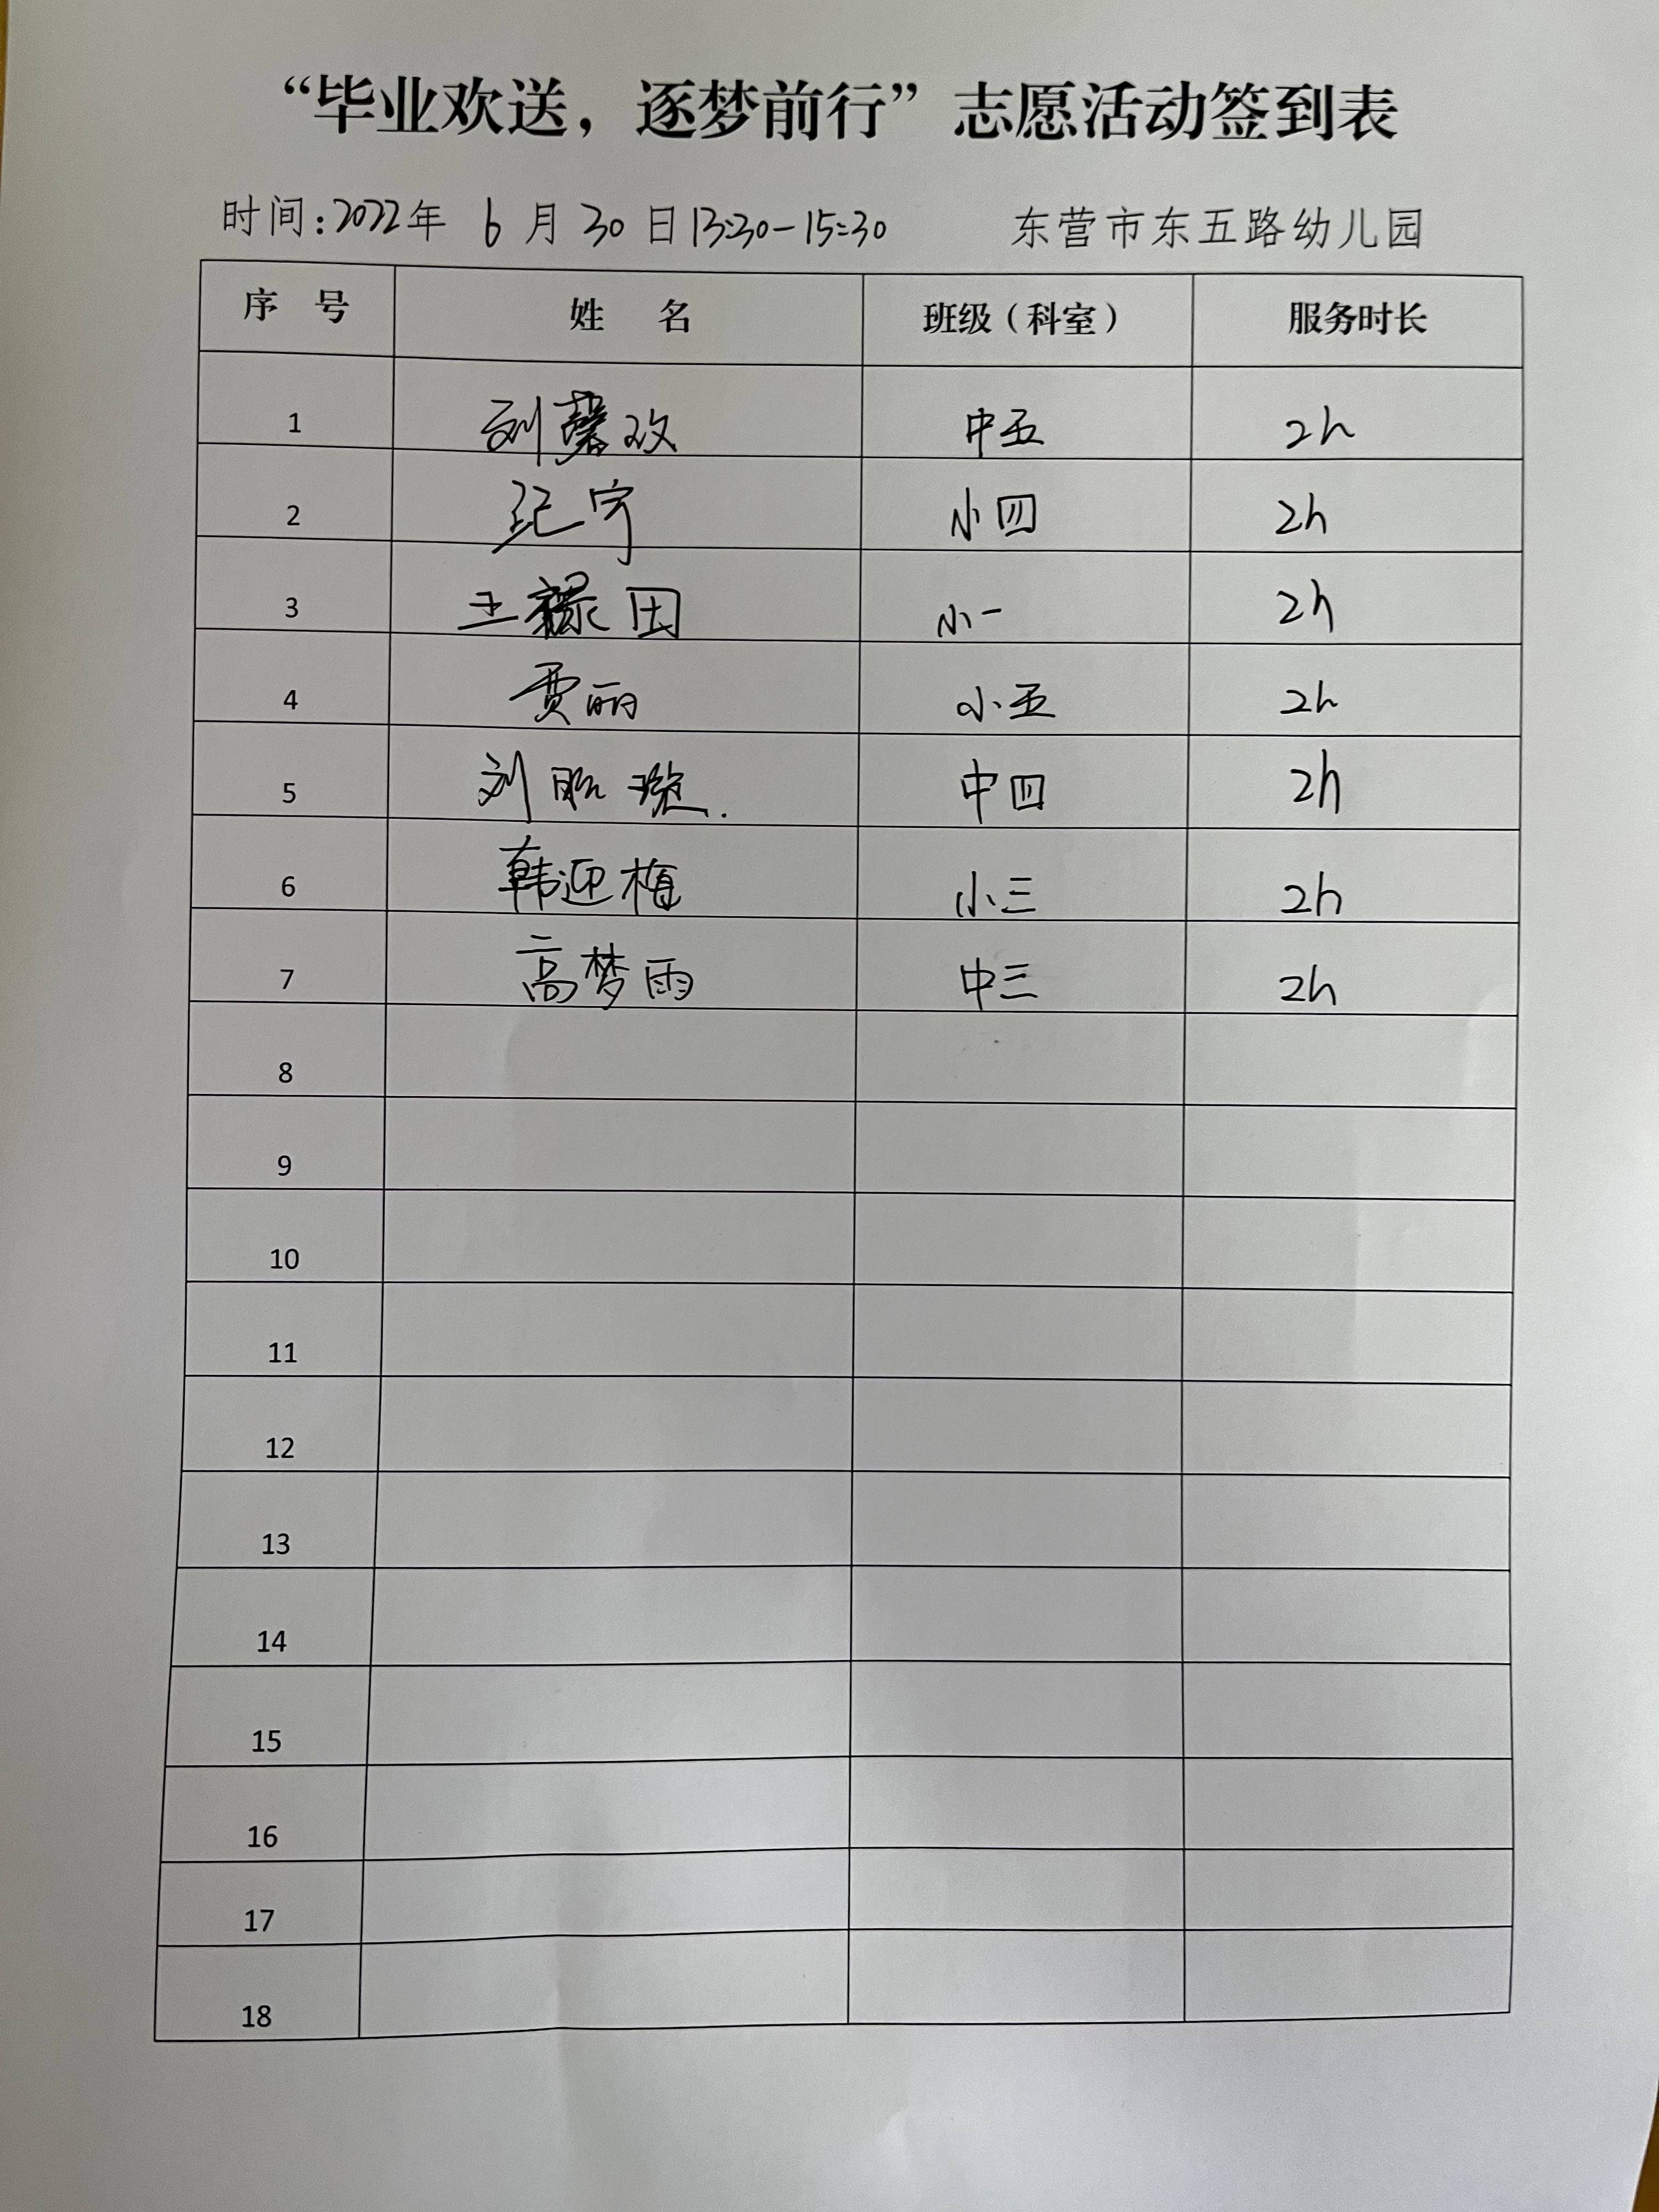 “毕业欢送，逐梦前行”志愿活动签到表
时间:2022年 6月30日13:30-15:30 东营市东五路幼儿园
序 号 姓 名 班级（科室） 服务时长
1 刘馨玫 中五 2h
2 纪宇 小四 2h
3 王 田 小一 2h
4 贾丽 小五 2h
5 刘 璇 中四 2h
6 韩迎梅 小三 2h
7 高梦雨 中三 2h
8
9
10
11
12
13
14
15
16
17
18